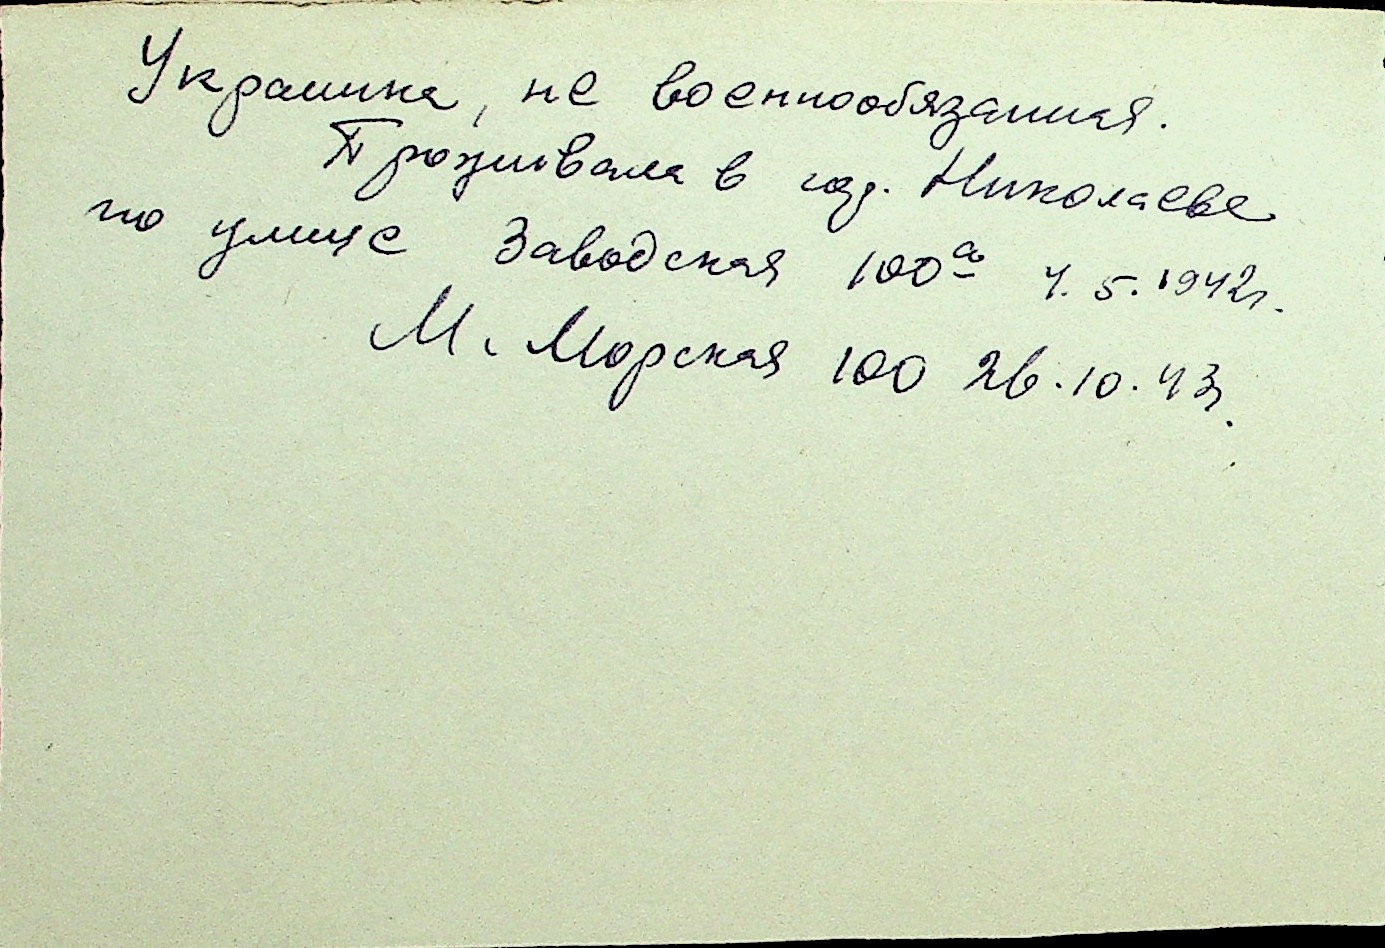 Украинка, не военнообязанная.
Проживала в гор. Николаеве
по улице Заводская 100а 4.5.1942г.
М. Морская 100 26.10.43г.